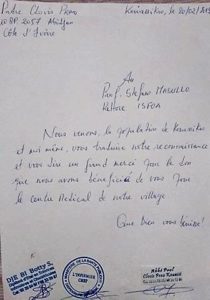 Padre Clovis
20 BP 2057 Abidjan
Côte d'Ivoire
Kouassikro, le 20/02/
Au
Prof. Stefano MASULLO
Rettore ISFOA
Nous venons, la population de Kouassikro
et moi même, vous traduire notre reconnaissance
et vous dire un grand merci pour le don
que nous avons bénéficié de vous pour
le centre Médical de notre village
Que Dieu vous bénisse!
DJE BI Botty S.
L'INFIRMIER
CHEF